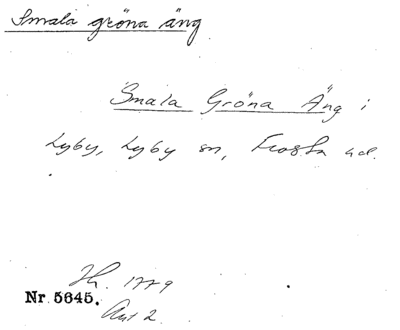 Smala gröna äng
Smala Gröna Äng i
Lyby, Lyby sn, Frosta hd.
Jh. 1779
Nr 5645.
Akt 2